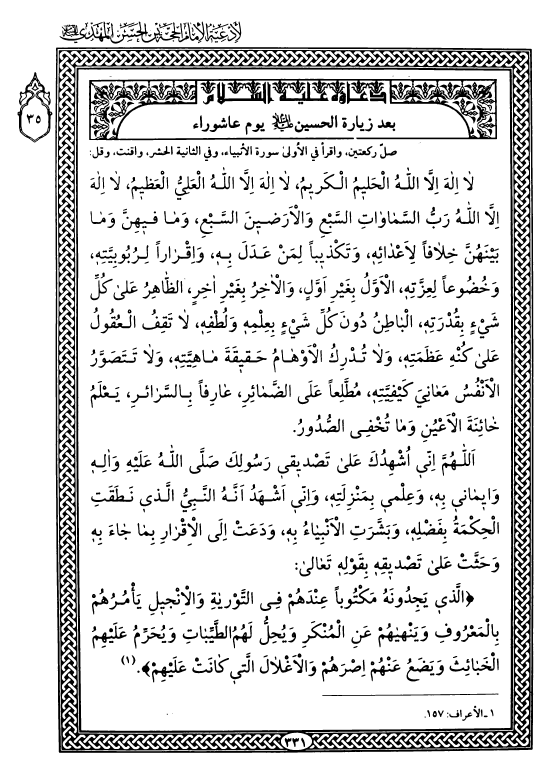 لأدعية الإمام الحجة بن الحسن المهدي
٣٥
دعاؤه عليه السلام
بعد زيارة الحسين عليه السلام يوم عاشوراء
صلّ ركعتين، واقرأ في الأولى سورة الأنبياء، وفي الثانية الحشر، واقنت، وقل:
لا اِلهَ اِلَّا اللهُ الْحَليمُ الْكَريمُ، لا اِلهَ اِلَّا اللهُ الْعَلِيُّ الْعَظيمُ، لا اِلهَ
اِلَّا اللهُ رَبُّ السَّماواتِ السَّبْعِ وَالْاَرَضينَ السَّبْعِ، وَما فيهِنَّ وَما
بَيْنَهُنَّ خِلافاً لِاَعْدائِهِ، وَتَكْذيباً لِمَنْ عَدَلَ بِهِ، وَاِقْراراً لِرُبُوبِيَّتِهِ،
وَخُضُوعاً لِعِزَّتِهِ، الْاَوَّلُ بِغَيْرِ اَوَّلٍ، وَالْاخِرُ بِغَيْرِ اخِرٍ، الظّاهِرُ عَلى كُلِّ
شَيْءٍ بِقُدْرَتِهِ، الْباطِنُ دُونَ كُلِّ شَيْءٍ بِعِلْمِهِ وَلُطْفِهِ، لا تَقِفُ الْعُقُولُ
عَلى كُنْهِ عَظَمَتِهِ، وَلا تُدْرِكُ الْاَوْهامُ حَقيقَةَ ماهِيَّتِهِ، وَلا تَتَصَوَّرُ
الْاَنْفُسُ مَعانِيَ كَيْفِيَّتِهِ، مُطَّلِعاً عَلَى الضَّمائِرِ، عارِفاً بِالسَّرائِرِ، يَعْلَمُ
خائِنَةَ الْاَعْيُنِ وَما تُخْفِى الصُّدُورُ.
اَللّهُمَّ اِنّي اُشْهِدُكَ عَلى تَصْديقي رَسُولَكَ صَلَّى اللهُ عَلَيْهِ وَالِهِ
وَايماني بِهِ، وَعِلْمي بِمَنْزِلَتِهِ، وَاِنّي اَشْهَدُ اَنَّهُ النَّبِيُّ الَّذي نَطَقَتِ
الْحِكْمَةُ بِفَضْلِهِ، وَبَشَّرَتِ الْاَنْبِياءُ بِهِ، وَدَعَتْ اِلَى الْاِقْرارِ بِما جاءَ بِهِ
وَحَثَّتْ عَلى تَصْديقِهِ بِقَوْلِهِ تَعالى:
﴿الَّذي يَجِدُونَهُ مَكْتُوباً عِنْدَهُمْ فِى التَّوْريةِ وَالْاِنْجيلِ يَأْمُرُهُمْ
بِالْمَعْرُوفِ وَيَنْهيهُمْ عَنِ الْمُنْكَرِ وَيُحِلُّ لَهُمُ الطَّيِّباتِ وَيُحَرِّمُ عَلَيْهِمُ
الْخَبائِثَ وَيَضَعُ عَنْهُمْ اِصْرَهُمْ وَالْاَغْلالَ الَّتي كانَتْ عَلَيْهِمْ﴾. (١)
١ ـ الأعراف: ١٥٧.
٣٣١